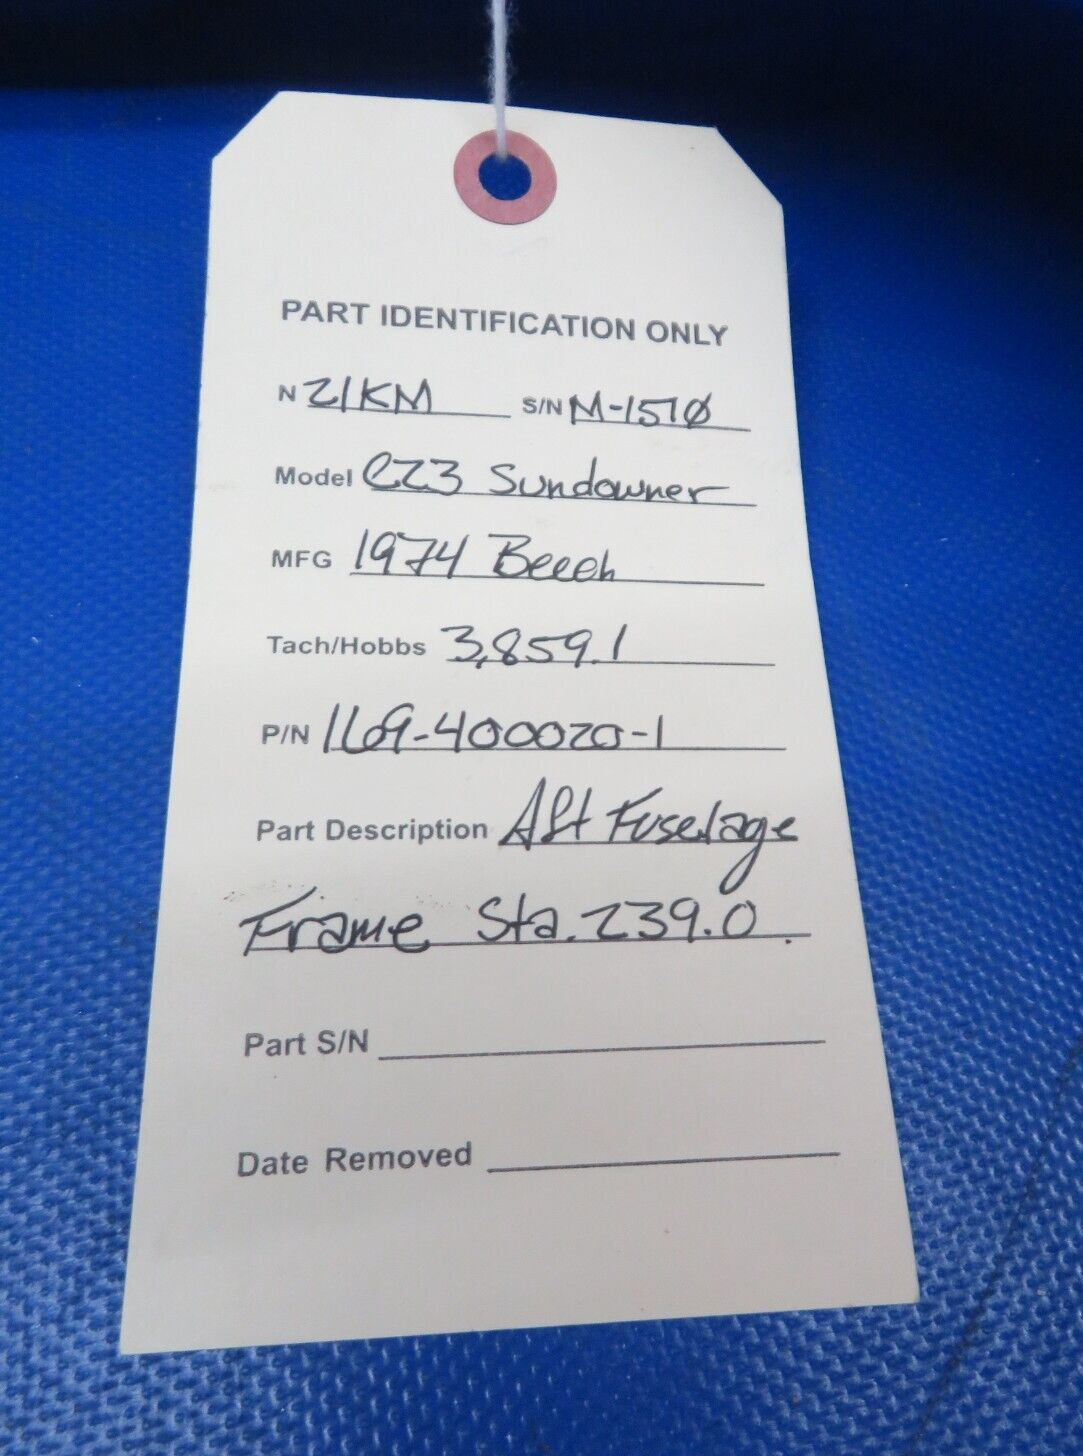 PART IDENTIFICATION ONLY
N 21KM S/N M-1510
Model C23 Sundowner
MFG 1974 Beech
Tach/Hobbs 3,859.1
P/N 169-400020-1
Part Description Aft Fuselage
Frame Sta. 239.0
Part S/N
Date Removed